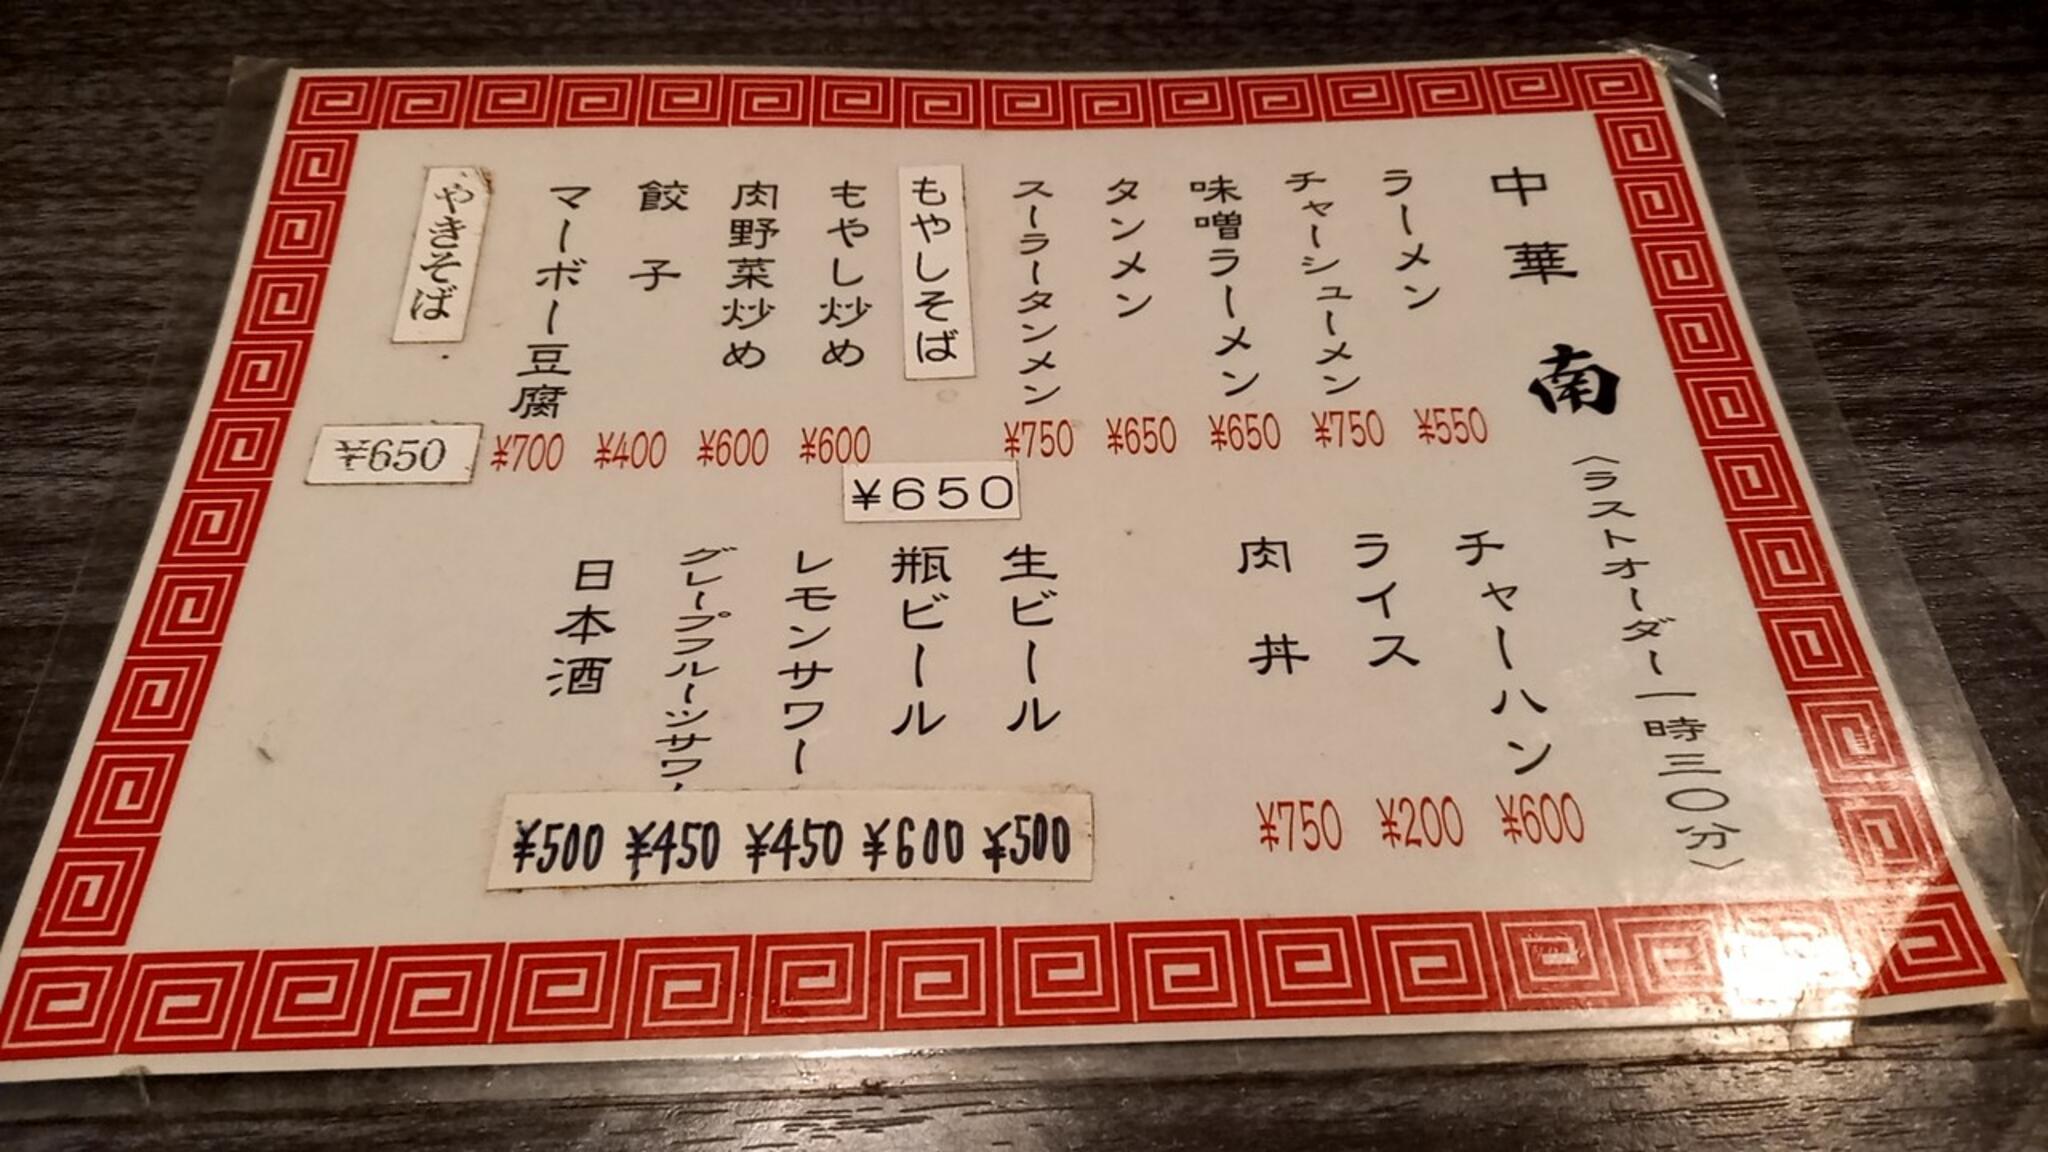 中華 南 〈ラストオーダー一時三〇分〉
ラーメン ¥550
チャーシューメン ¥750
味噌ラーメン ¥650
タンメン ¥650
スーラータンメン ¥750
もやしそば ¥650
もやし炒め ¥600
肉野菜炒め ¥600
餃子 ¥400
マーボー豆腐 ¥700
やきそば ¥650
チャーハン ¥600
ライス ¥200
肉丼 ¥750
生ビール ¥500
瓶ビール ¥600
レモンサワー ¥450
グレープフルーツサワー ¥450
日本酒 ¥500